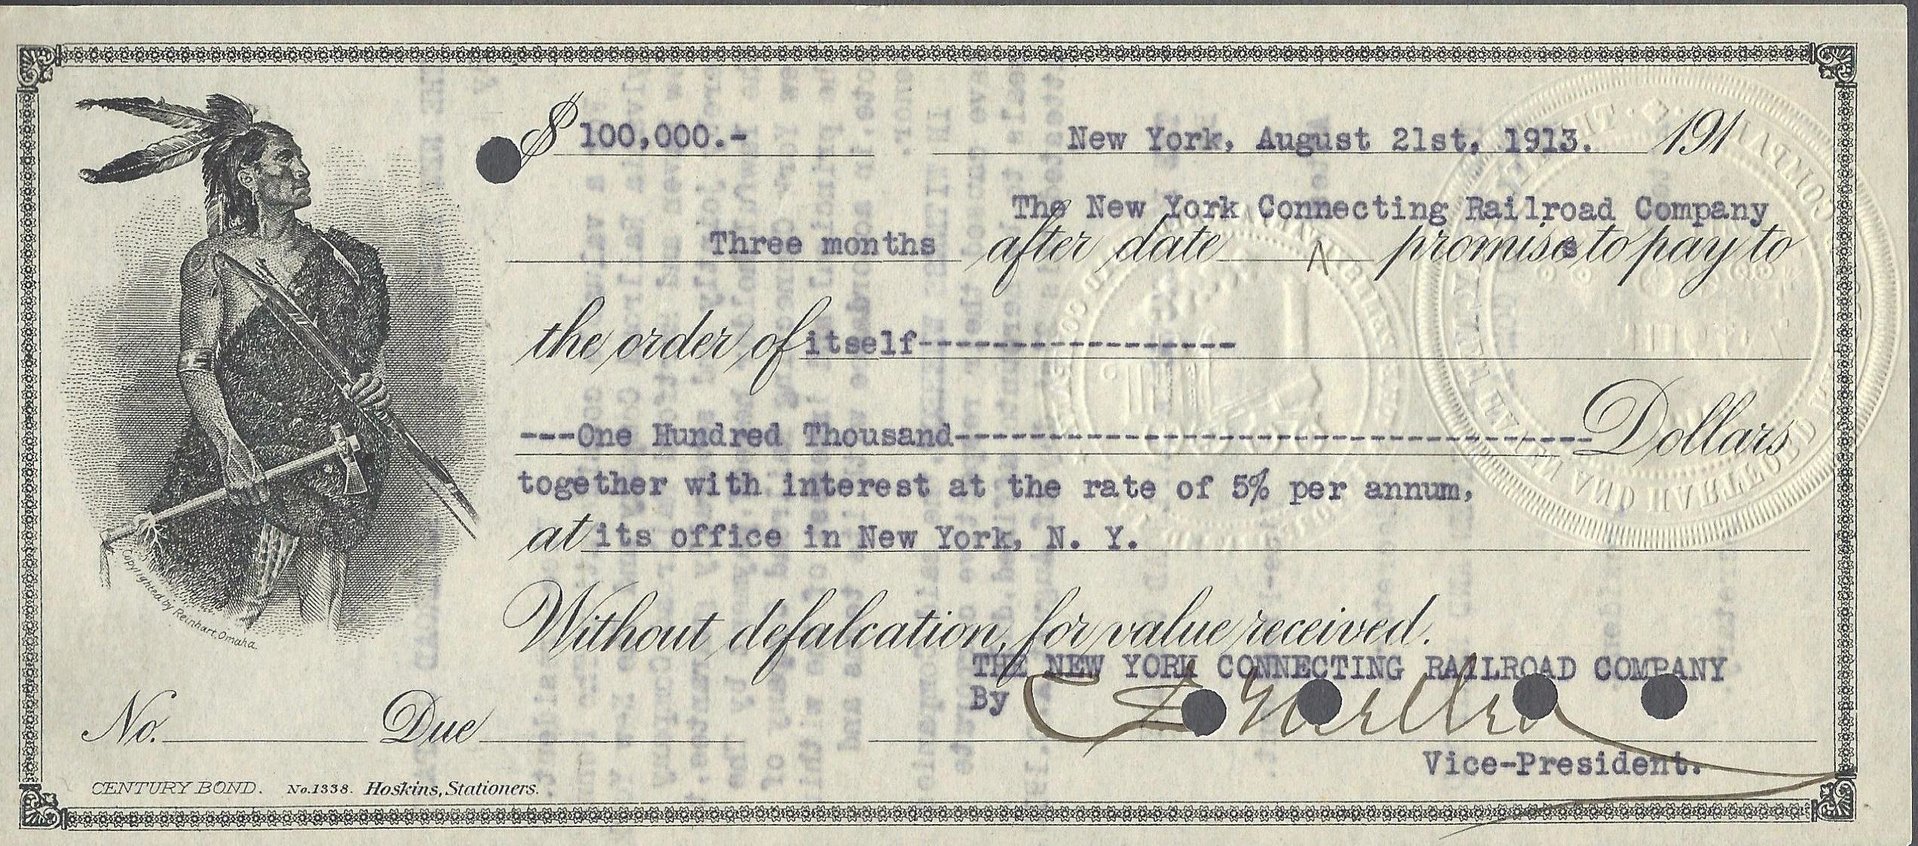 $ 100,000.- New York, August 21st, 1913. 191
The New York Connecting Railroad Company
Three months after date ^ promises to pay to
the order of itself------------------
---One Hundred Thousand----------------------------------- Dollars
together with interest at the rate of 5% per annum,
at its office in New York, N. Y.
Without defalcation, for value received.
THE NEW YORK CONNECTING RAILROAD COMPANY
By
Vice-President.
No. Due
CENTURY BOND. No. 1338. Hoskins, Stationers.
Copyrighted by Reinhart, Omaha.